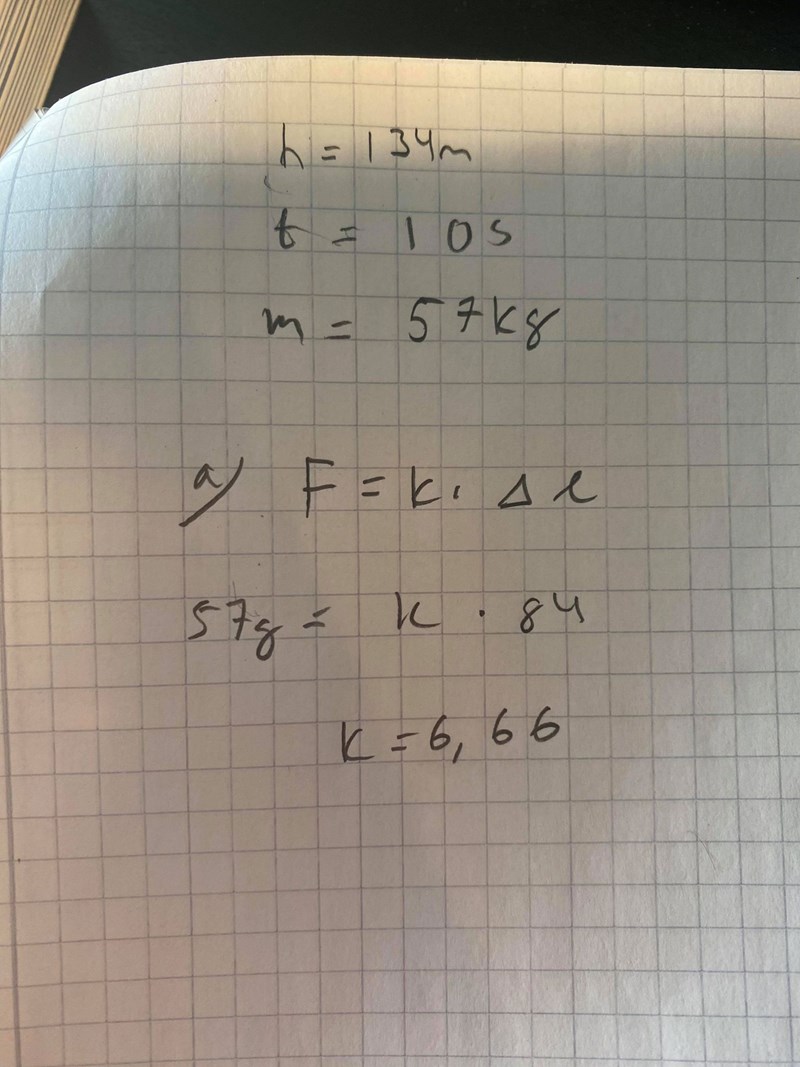 h = 134m
t = 10s
m = 57kg
a) F = k · Δl
57g = k · 84
k = 6,66